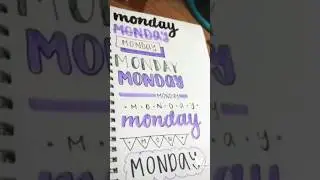 monday
MONDAY
MONDAY
MONDAY
MONDAY
MONDAY
· M · O · N · D · A · Y ·
monday
MONDAY
MONDAY